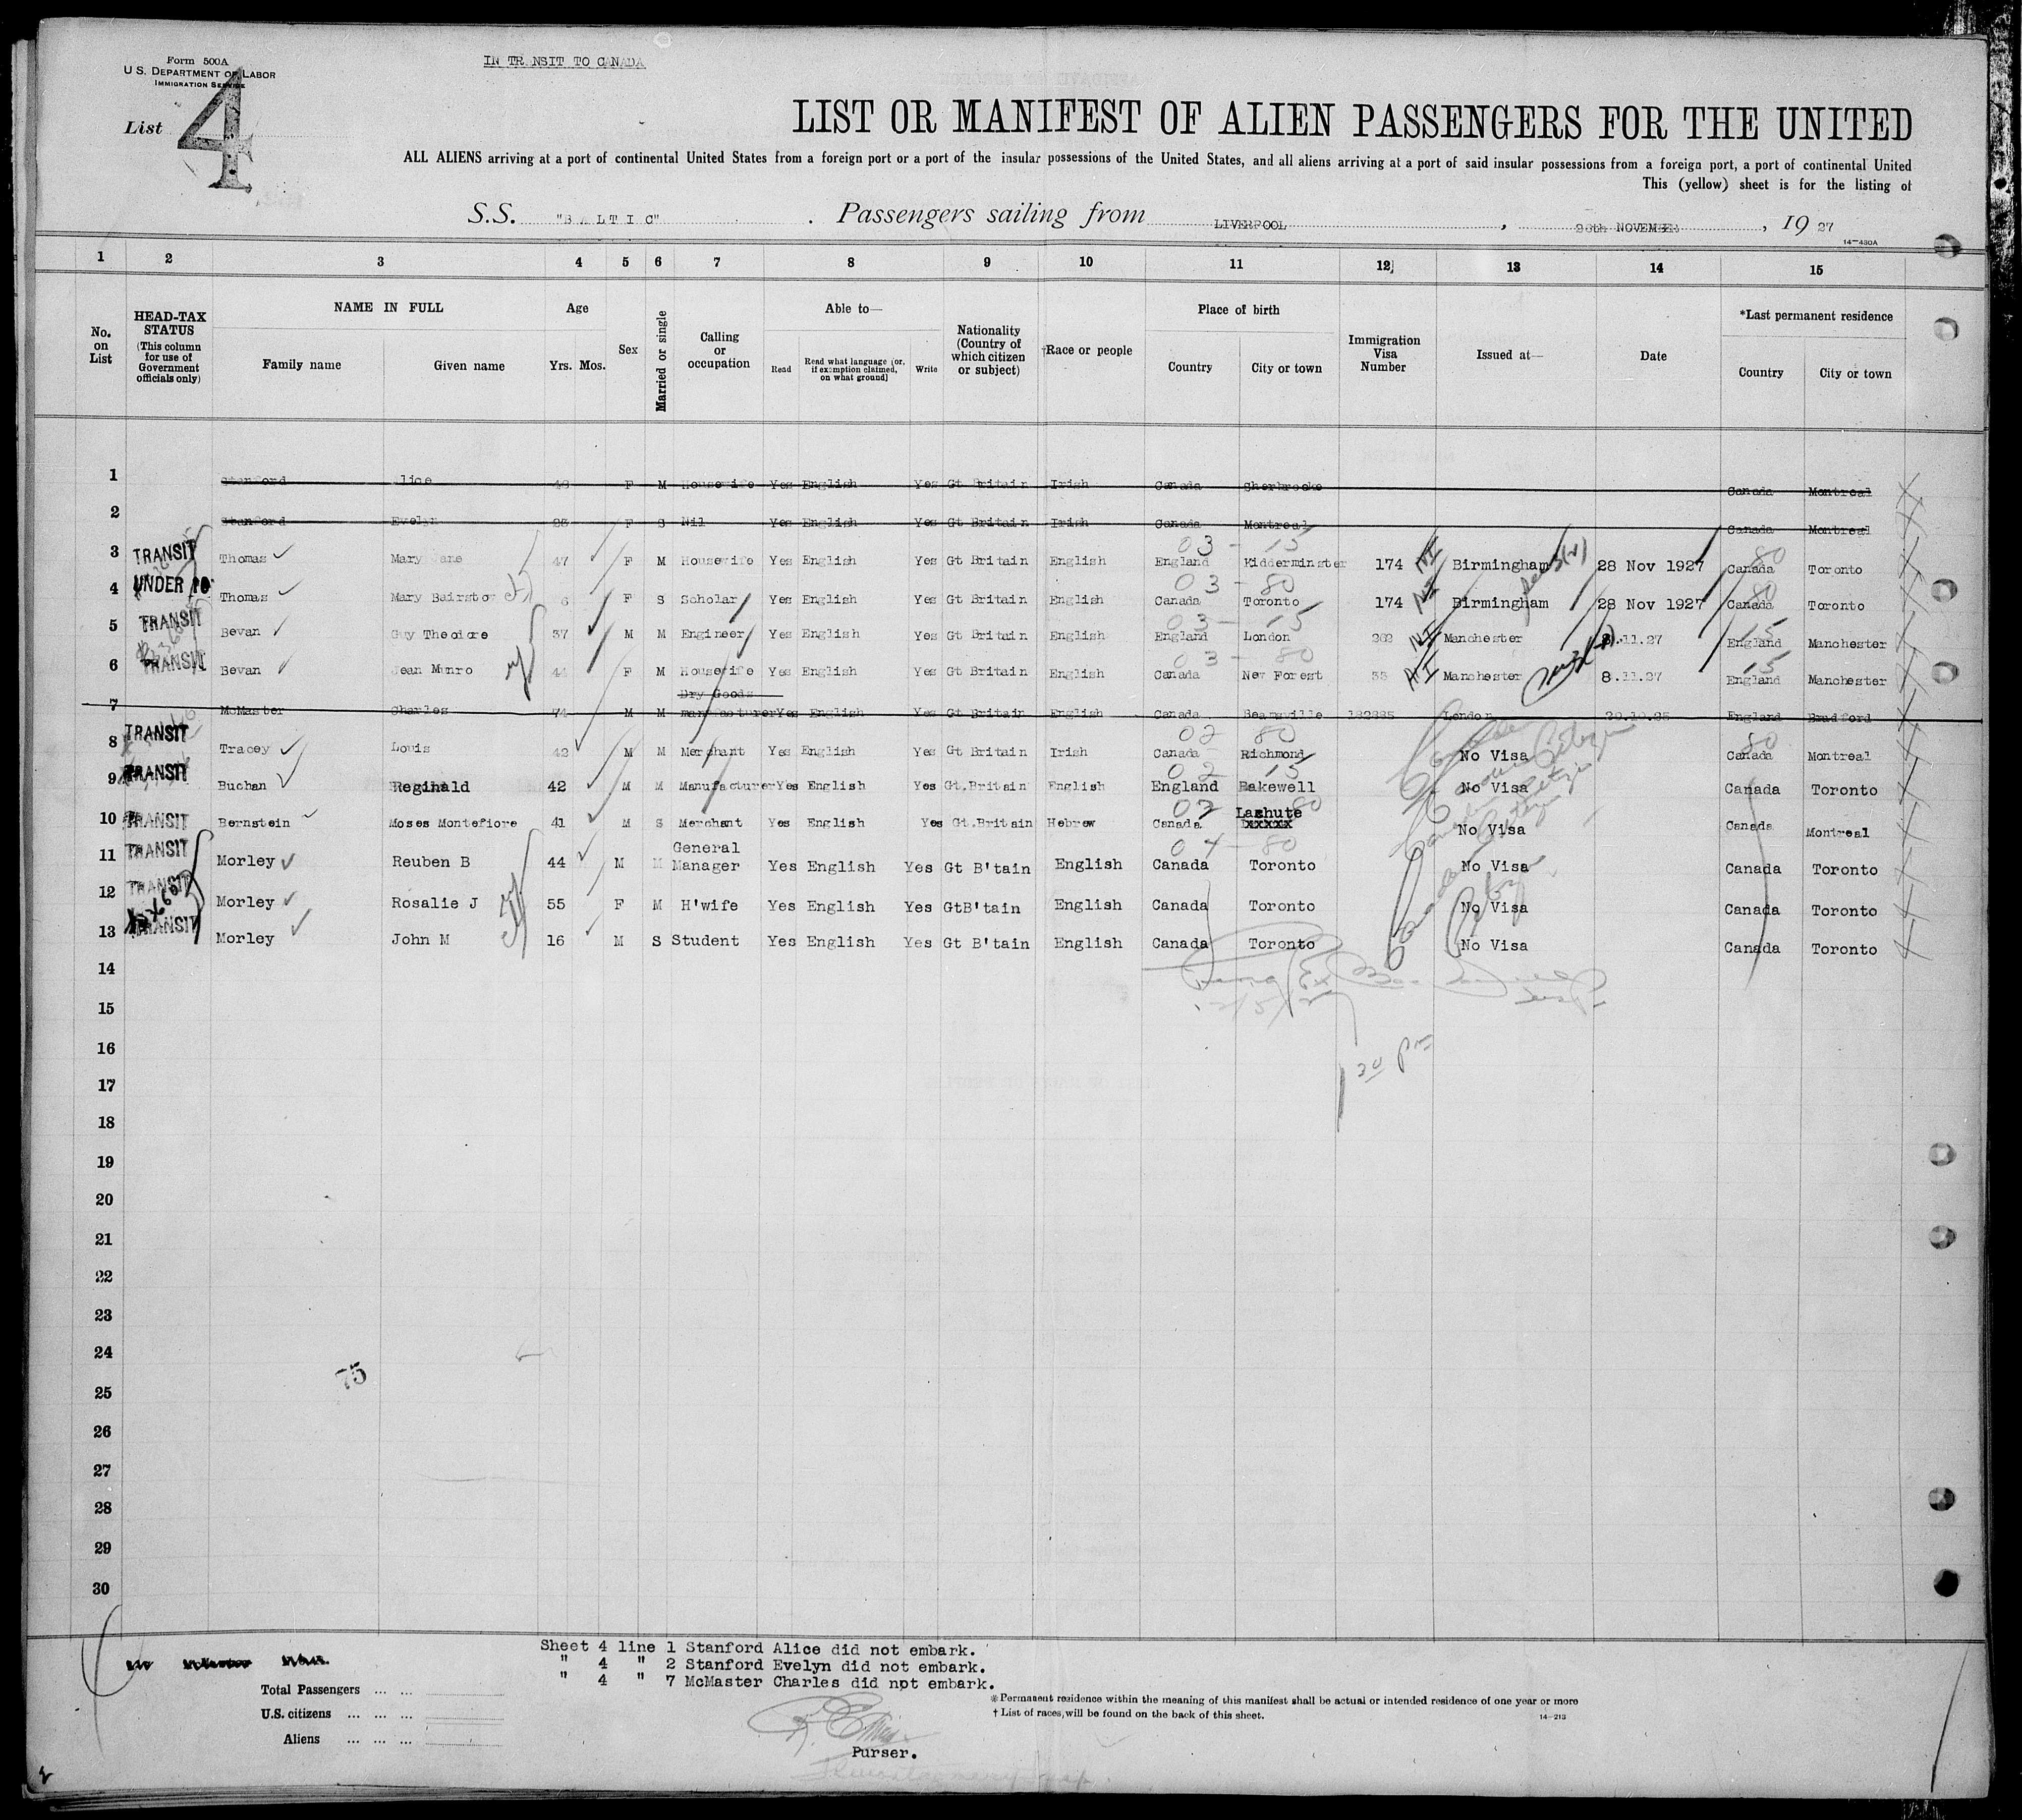 Form 500A
U.S. DEPARTMENT OF LABOR
IMMIGRATION SERVICE
IN TR NSIT TO CANADA
List 4
LIST OR MANIFEST OF ALIEN PASSENGERS FOR THE UNITED
ALL ALIENS arriving at a port of continental United States from a foreign port or a port of the insular possessions of the United States, and all aliens arriving at a port of said insular possessions from a foreign port, a port of continental United
This (yellow) sheet is for the listing of
S.S. "B A L T I C" . Passengers sailing from LIVERPOOL , 26th NOVEMBER , 19 27
14—430A
1 2 3 4 5 6 7 8 9 10 11 12 13 14 15
No. on List
HEAD-TAX STATUS (This column for use of Government officials only)
NAME IN FULL
Family name Given name
Age
Yrs. Mos.
Sex
Married or single
Calling or occupation
Able to—
Read Read what language (or, if exemption claimed, on what ground) Write
Nationality (Country of which citizen or subject)
†Race or people
Place of birth
Country City or town
Immigration Visa Number
Issued at—
Date
*Last permanent residence
Country City or town
1 Stanford Alice 48 F M Housewife Yes English Yes Gt Britain Irish Canada Sherbrooke Canada Montreal
2 Stanford Evelyn 23 F S Nil Yes English Yes Gt Britain Irish Canada Montreal Canada Montreal
03 - 15
3 TRANSIT Thomas Mary Jane 47 F M Housewife Yes English Yes Gt Britain English England Kidderminster 174 NI Birmingham 28 Nov 1927 80 Canada Toronto
03 - 80
4 UNDER 16 Thomas Mary Bairstow 6 F S Scholar Yes English Yes Gt Britain English Canada Toronto 174 NI Birmingham 28 Nov 1927 80 Canada Toronto
03 - 15
5 TRANSIT Bevan Guy Theodore 37 M M Engineer Yes English Yes Gt Britain English England London 262 NI Manchester 8.11.27 15 England Manchester
03 - 80
6 TRANSIT Bevan Jean Munro 44 F M Housewife Yes English Yes Gt Britain English Canada New Forest 33 NI Manchester 8.11.27 15 England Manchester
Dry Goods
7 McMaster Charles 74 M M manufacturer Yes English Yes Gt Britain English Canada Beamsville 182335 London 20.10.25 England Bradford
02 80
8 TRANSIT Tracey Louis 42 M M Merchant Yes English Yes Gt Britain Irish Canada Richmond No Visa Canadian Citizen 80 Canada Montreal
02 15
9 TRANSIT Buchan Reginald 42 M M Manufacturer Yes English Yes Gt.Britain English England Bakewell No Visa Canada Toronto
02 Lachute 80
10 TRANSIT Bernstein Moses Montefiore 41 M S Merchant Yes English Yes Gt.Britain Hebrew Canada xxxxx No Visa Canada Montreal
04 - 80
General
11 TRANSIT Morley Reuben B 44 M M Manager Yes English Yes Gt B'tain English Canada Toronto No Visa Canada Toronto
12 TRANSIT Morley Rosalie J 55 F M H'wife Yes English Yes GtB'tain English Canada Toronto No Visa Canada Toronto
13 TRANSIT Morley John M 16 M S Student Yes English Yes Gt B'tain English Canada Toronto No Visa Canada Toronto
14
15
16
1 20 pm
17
18
19
20
21
22
23
24
75
25
26
27
28
29
30
Sheet 4 line 1 Stanford Alice did not embark.
" 4 " 2 Stanford Evelyn did not embark.
" 4 " 7 McMaster Charles did not embark.
Total Passengers ... ...
U.S. citizens ... ... ...
Aliens ... ... ...
Purser.
* Permanent residence within the meaning of this manifest shall be actual or intended residence of one year or more
† List of races, will be found on the back of this sheet.
14—213